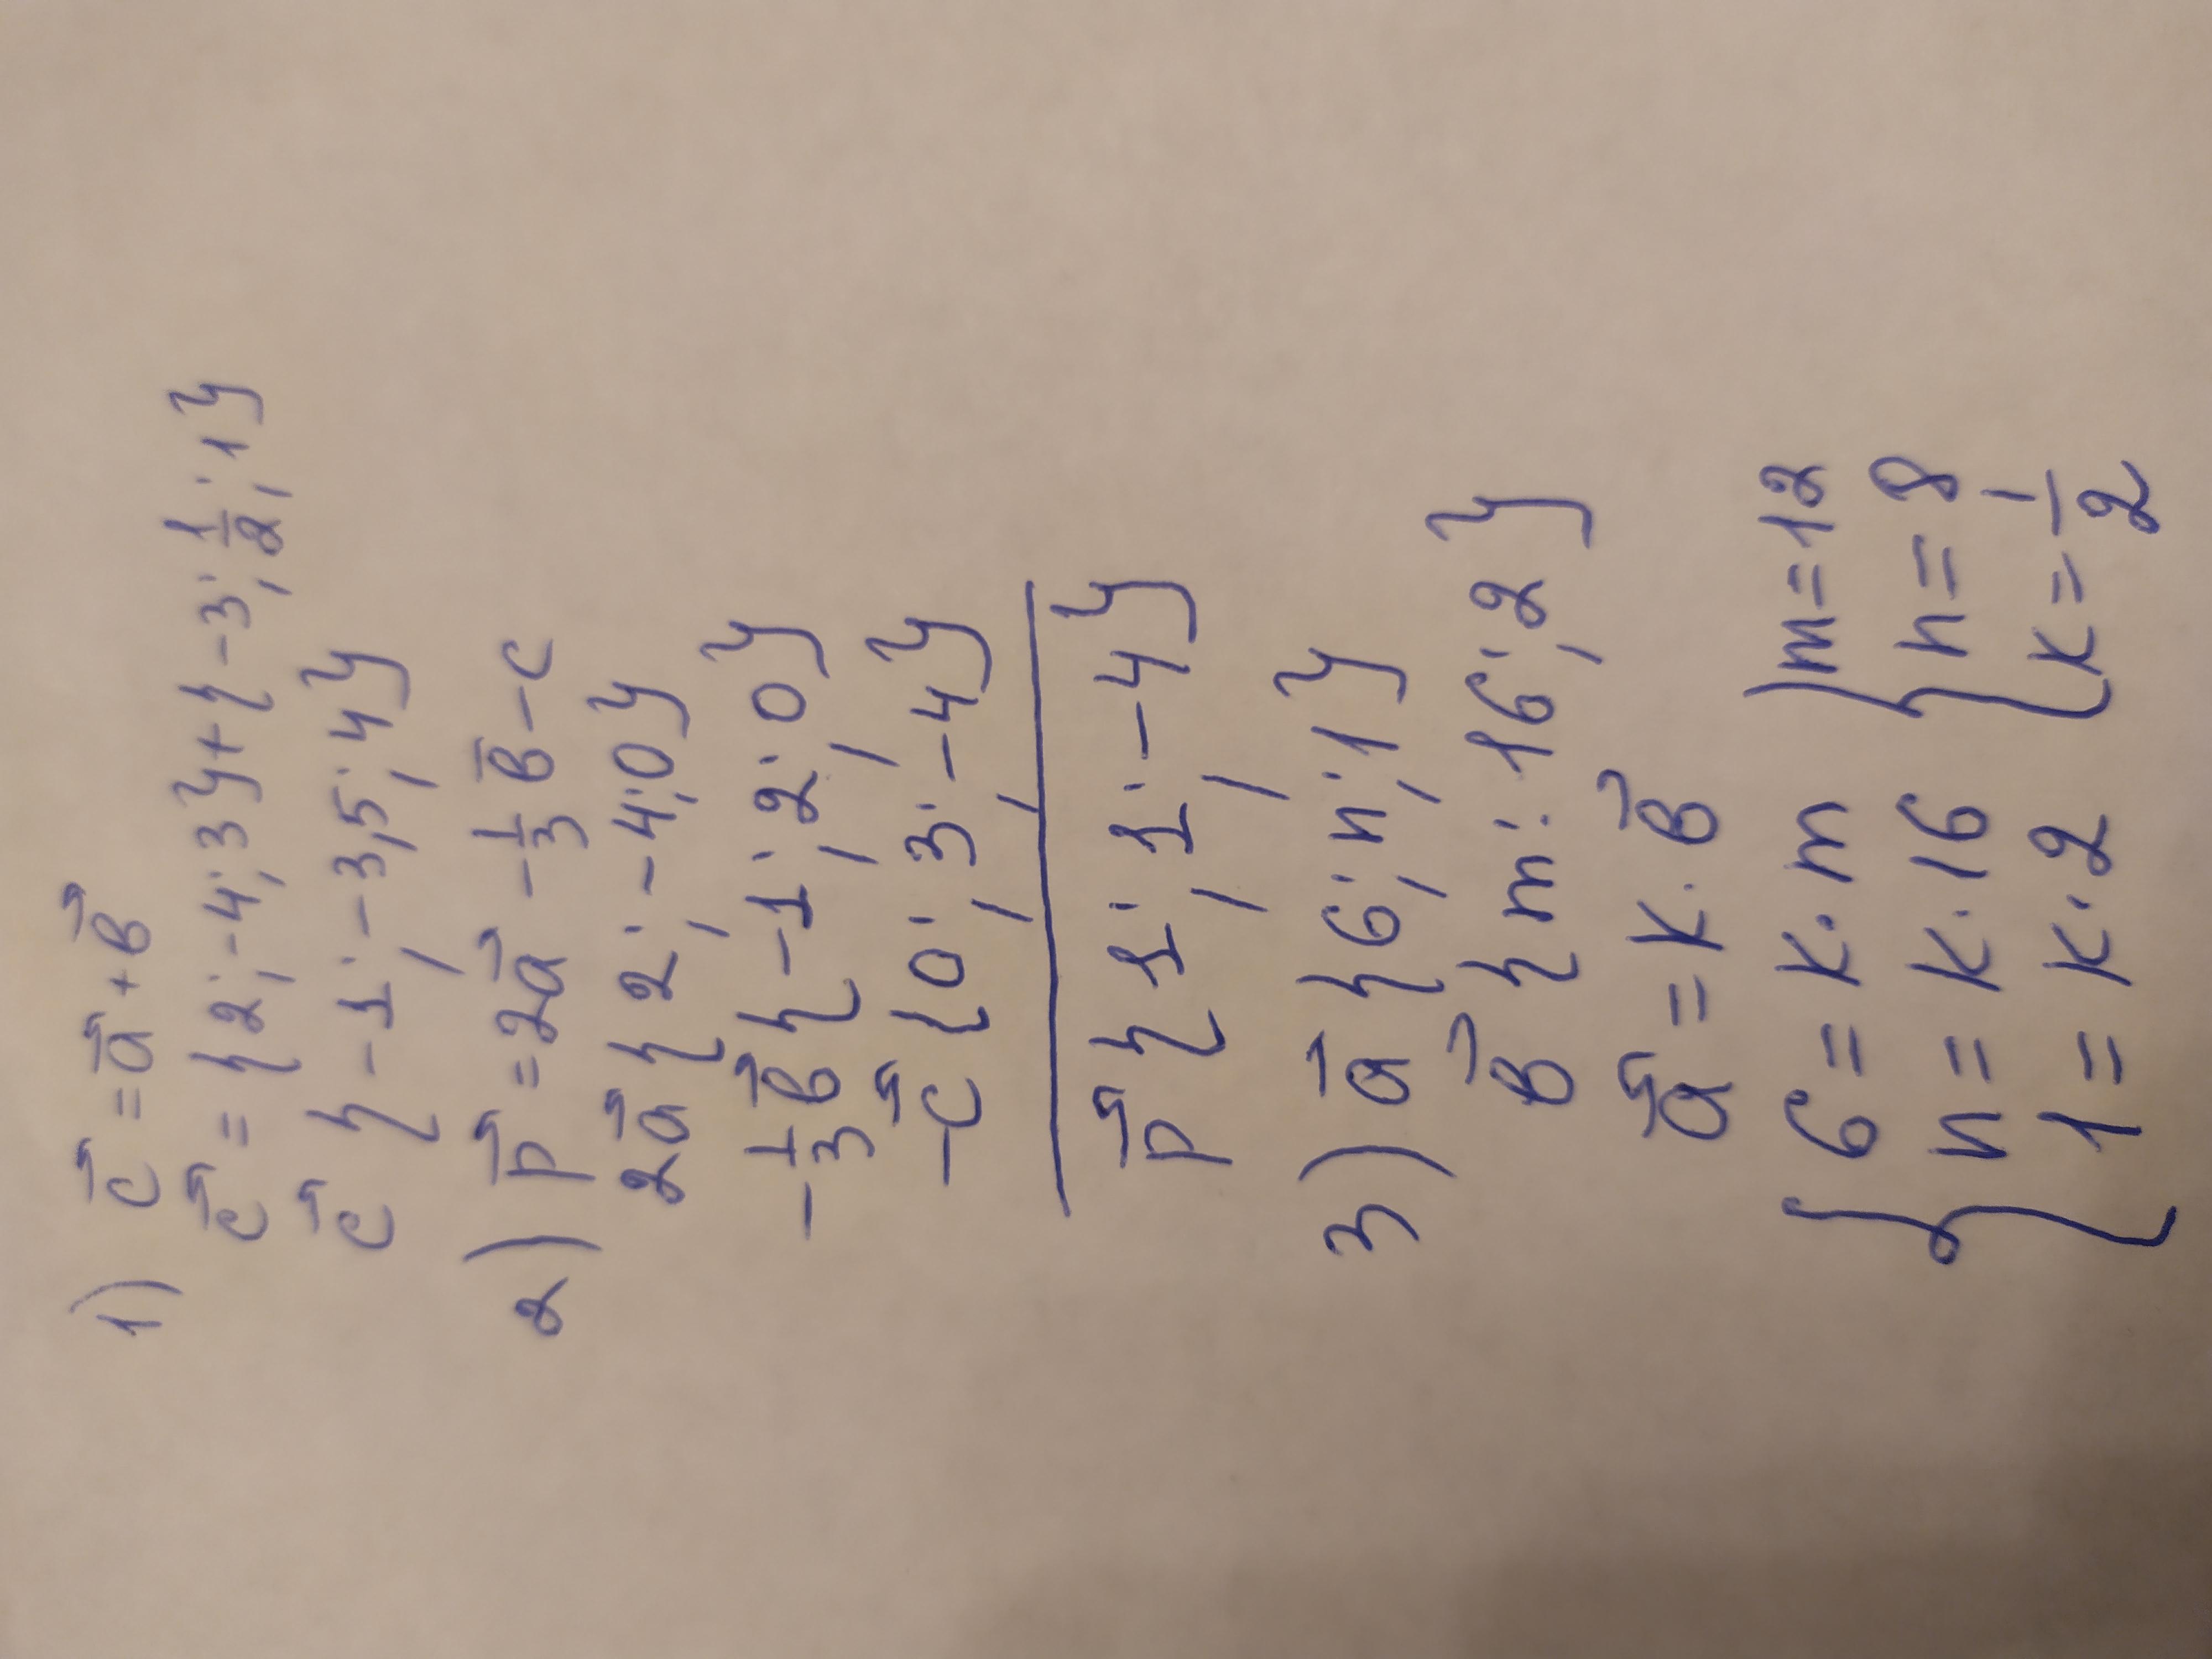 1) c⃗ = a⃗ + в⃗
c⃗ = {2; -4; 3} + {-3; 1/2; 1}
c⃗ {-1; -3,5; 4}
2) p⃗ = 2a⃗ - 1/3 в̅ - c
2a⃗ {2; -4; 0}
-1/3 в⃗ {-1; 2; 0}
-c⃗ {0; 3; -4}
p⃗ {1; 1; -4}
3) a⃗ {6; n; 1}
в⃗ {m; 16; 2}
a⃗ = k · в⃗
{6 = k · m {m = 12
n = k · 16 n = 8
1 = k · 2 k = 1/2